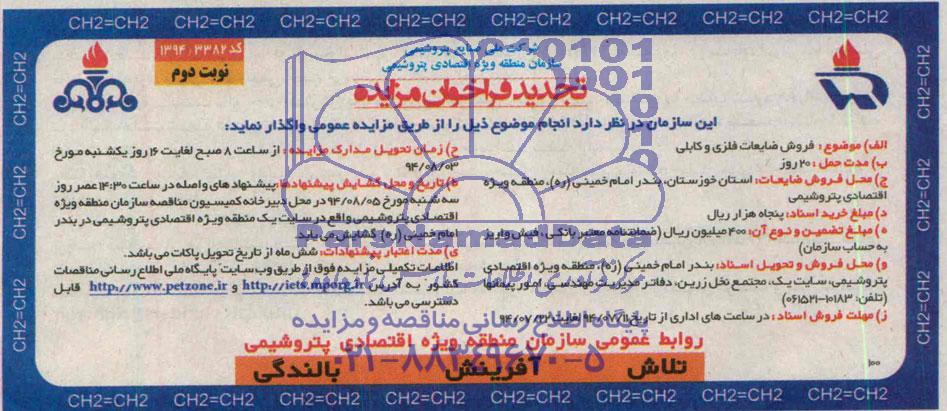 CH2=CH2 CH2=CH2 CH2=CH2 CH2=CH2 CH2=CH2 CH2=CH2 CH2=CH2 CH2=CH2
کد ۳۳۸۲ / ۱۳۹۴
نوبت دوم
شرکت ملی صنایع پتروشیمی
سازمان منطقه ویژه اقتصادی پتروشیمی
تجدید فراخوان مزایده
این سازمان در نظر دارد انجام موضوع ذیل را از طریق مزایده عمومی واگذار نماید:
الف) موضوع : فروش ضایعات فلزی و کابلی
ب) مدت حمل : ۲۰ روز
ج) محل فروش ضایعات: استان خوزستان، بندر امام خمینی (ره)، منطقه ویژه
اقتصادی پتروشیمی
د) مبلغ خرید اسناد: پنجاه هزار ریال
ه) مبلغ تضمین و نوع آن: ۴۰۰ میلیون ریال (ضمانتنامه معتبر بانکی، فیش واریز
به حساب سازمان)
و) محل فروش و تحویل اسناد: بندر امام خمینی (ره)، منطقه ویژه اقتصادی
پتروشیمی، سایت یک، مجتمع نخل زرین، دفاتر مدیریت مهندسی، امور پیمانها
(تلفن: ۱۰۱۸۳-۰۶۱۵۲)
ز) مهلت فروش اسناد : در ساعت های اداری از تاریخ ۹۴/۰۷/۱۱ لغایت ۹۴/۰۷/۲۲
ح) زمان تحویل مدارک مزایده : از ساعت ۸ صبح لغایت ۱۶ روز یکشنبه مورخ
۹۴/۰۸/۰۳
ط) تاریخ و محل گشایش پیشنهادها: پیشنهادهای واصله در ساعت ۱۴:۳۰ عصر روز
سه شنبه مورخ ۹۴/۰۸/۰۵ در محل دبیرخانه کمیسیون مناقصه سازمان منطقه ویژه
اقتصادی پتروشیمی واقع در سایت یک منطقه ویژه اقتصادی پتروشیمی در بندر
امام خمینی (ره) گشایش می یابد.
ی) مدت اعتبار پیشنهادات: شش ماه از تاریخ تحویل پاکات می باشد.
اطلاعات تکمیلی مزایده فوق از طریق وب سایت پایگاه ملی اطلاع رسانی مناقصات
کشور به آدرس http://iets.mporg.ir و http://www.petzone.ir قابل
دسترسی می باشد.
روابط عمومی سازمان منطقه ویژه اقتصادی پتروشیمی
تلاش آفرینش بالندگی
۱۰۰
ParsNamadData
پایگاه اطلاع رسانی مناقصه و مزایده
۰۲۱-۸۸۳۴۹۶۷۰-۵
CH2=CH2 CH2=CH2 CH2=CH2 CH2=CH2 CH2=CH2 CH2=CH2 CH2=CH2 CH2=CH2